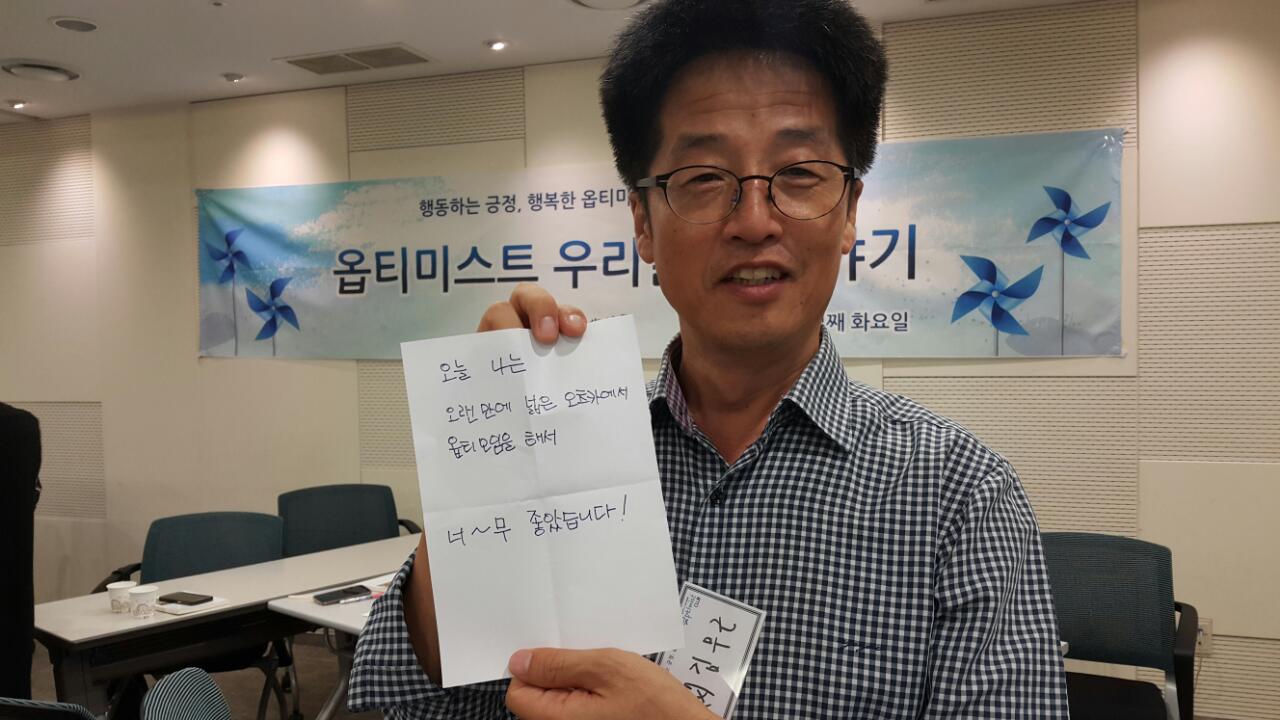 행동하는 긍정, 행복한 옵티미
옵티미스트 우리들 야기
째 화요일
오늘 나는
오랜만에 넓은 오초카에서
옵티모임을 해서
너~무 좋았습니다!